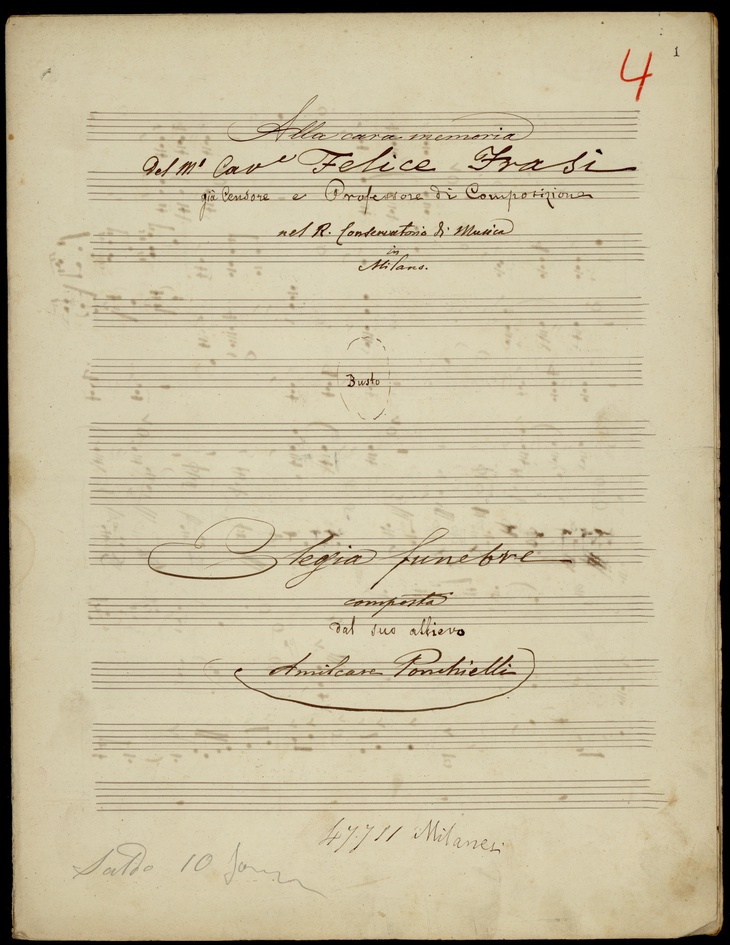 4
1
Alla cara memoria
del M.º Cav.e Felice Frasi
già Censore e Professore di Composizione
nel R. Conservatorio di Musica
in
Milano.
Busto
Elegia funebre
composta
dal suo allievo
Amilcare Ponchielli
47711 Milanesi
Saldo 10